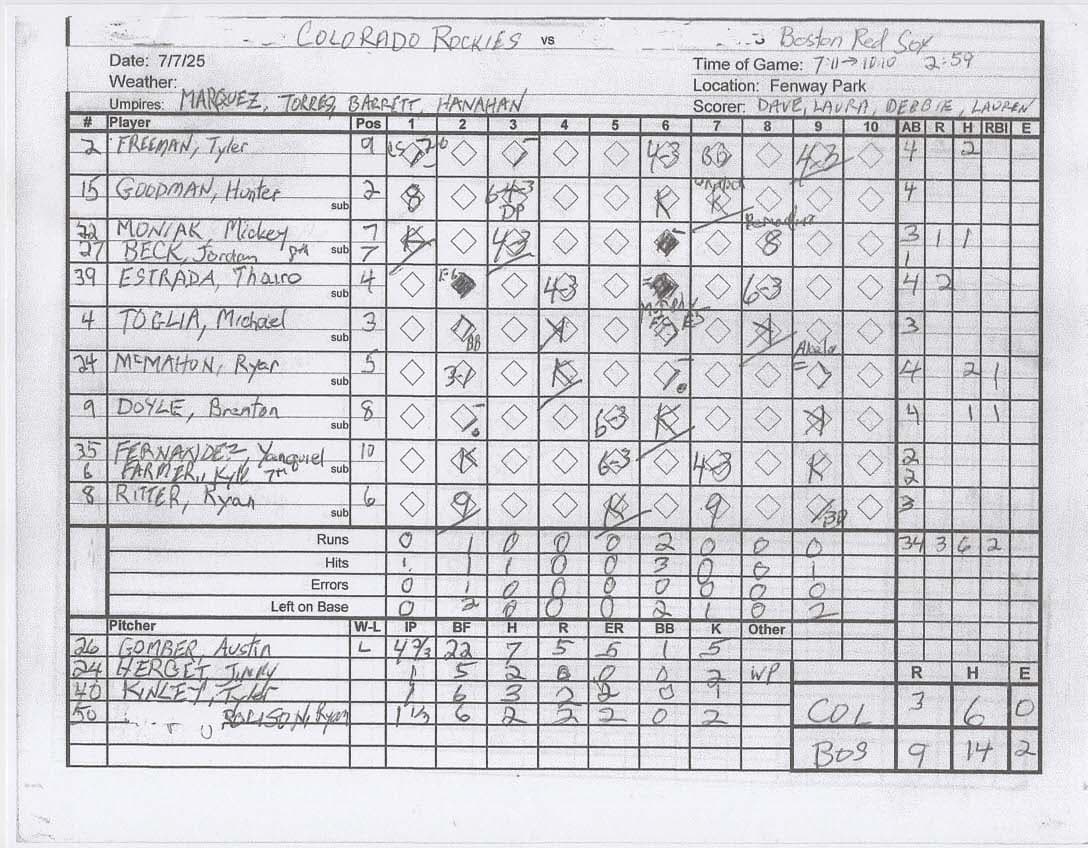 COLORADO ROCKIES vs Boston Red Sox
Date: 7/7/25 Time of Game: 7:11→10:10 2:59
Weather: Location: Fenway Park
Umpires: MARQUEZ, TORRES, BARRETT, HANAHAN Scorer: DAVE, LAURA, DEBBIE, LAUREN
# Player Pos 1 2 3 4 5 6 7 8 9 10 AB R H RBI E
2 FREEMAN, Tyler 9 4-3 BB 4-3 4 2
15 GOODMAN, Hunter sub 2 8 6-4-3 DP K K 4
22 MONIAK Mickey 7 K 4-3 8 3 1 1
27 BECK, Jordan 8th sub 7 1
39 ESTRADA, Thairo sub 4 E-6 4-3 6-3 4 2
4 TOGLIA, Michael sub 3 BB K E5 K 3
24 McMAHON, Ryan sub 5 3-1 K 4 2 1
9 DOYLE, Brenton sub 8 6-3 K K 4 1 1
35 FERNANDEZ, Yanquiel 10 K 6-3 4-3 K 2
6 FARMER, Kyle 7th sub 2
8 RITTER, Ryan sub 6 9 K 9 3
Runs 0 1 0 0 0 2 0 0 0 34 3 6 2
Hits 1 1 1 0 0 3 0 0 1
Errors 0 1 0 0 0 0 0 0
Left on Base 0 2 0 0 0 2 1 0 2
Pitcher W-L IP BF H R ER BB K Other
26 GOMBER, Austin L 4 2/3 22 7 5 5 1 5
24 HERGET, Jimmy 1 5 2 0 0 0 2 WP
40 KINLEY, Tyler 1 6 3 2 2 0 1
50 ROLISON, Ryan 1 1/3 6 2 2 2 0 2
R H E
COL 3 6 0
BOS 9 14 2